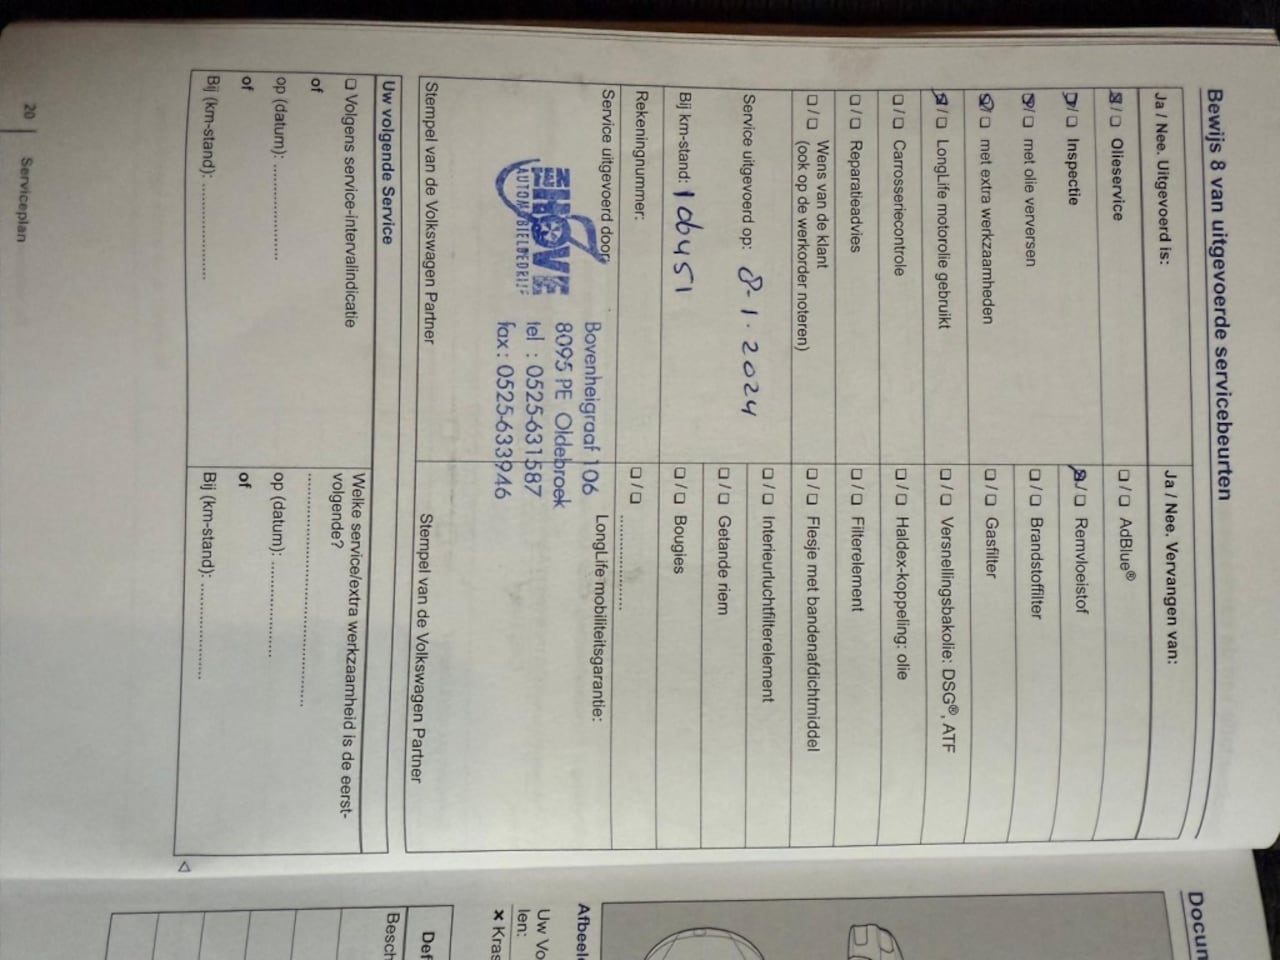 Bewijs 8 van uitgevoerde servicebeurten
Ja / Nee. Uitgevoerd is:
☒/☐ Olieservice
☒/☐ Inspectie
☒/☐ met olie verversen
☒/☐ met extra werkzaamheden
☒/☐ LongLife motorolie gebruikt
☐/☐ Carrosseriecontrole
☐/☐ Reparatieadvies
☐/☐ Wens van de klant
(ook op de werkorder noteren)
Service uitgevoerd op: 8-1.2024
Bij km-stand: 106451
Rekeningnummer:
Ja / Nee. Vervangen van:
☐/☐ AdBlue®
☒/☐ Remvloeistof
☐/☐ Brandstoffilter
☐/☐ Gasfilter
☐/☐ Versnellingsbakolie: DSG®, ATF
☐/☐ Haldex-koppeling: olie
☐/☐ Filterelement
☐/☐ Flesje met bandenafdichtmiddel
☐/☐ Interieurluchtfilterelement
☐/☐ Getande riem
☐/☐ Bougies
☐/☐ ....................
Service uitgevoerd door:
AUTOMOBIELBEDRIJF
Bovenheigraaf 106
8095 PE Oldebroek
tel : 0525-631587
fax: 0525-633946
Stempel van de Volkswagen Partner
LongLife mobiliteitsgarantie:
Stempel van de Volkswagen Partner
Uw volgende Service
☐ Volgens service-intervalindicatie
of
op (datum): ....................
of
Bij (km-stand): ....................
Welke service/extra werkzaamheid is de eerst-
volgende?
........................................
op (datum): ....................
of
Bij (km-stand): ....................
20 | Serviceplan
Docun
Afbeele
Uw Vo
len:
× Kras
Def
Besch